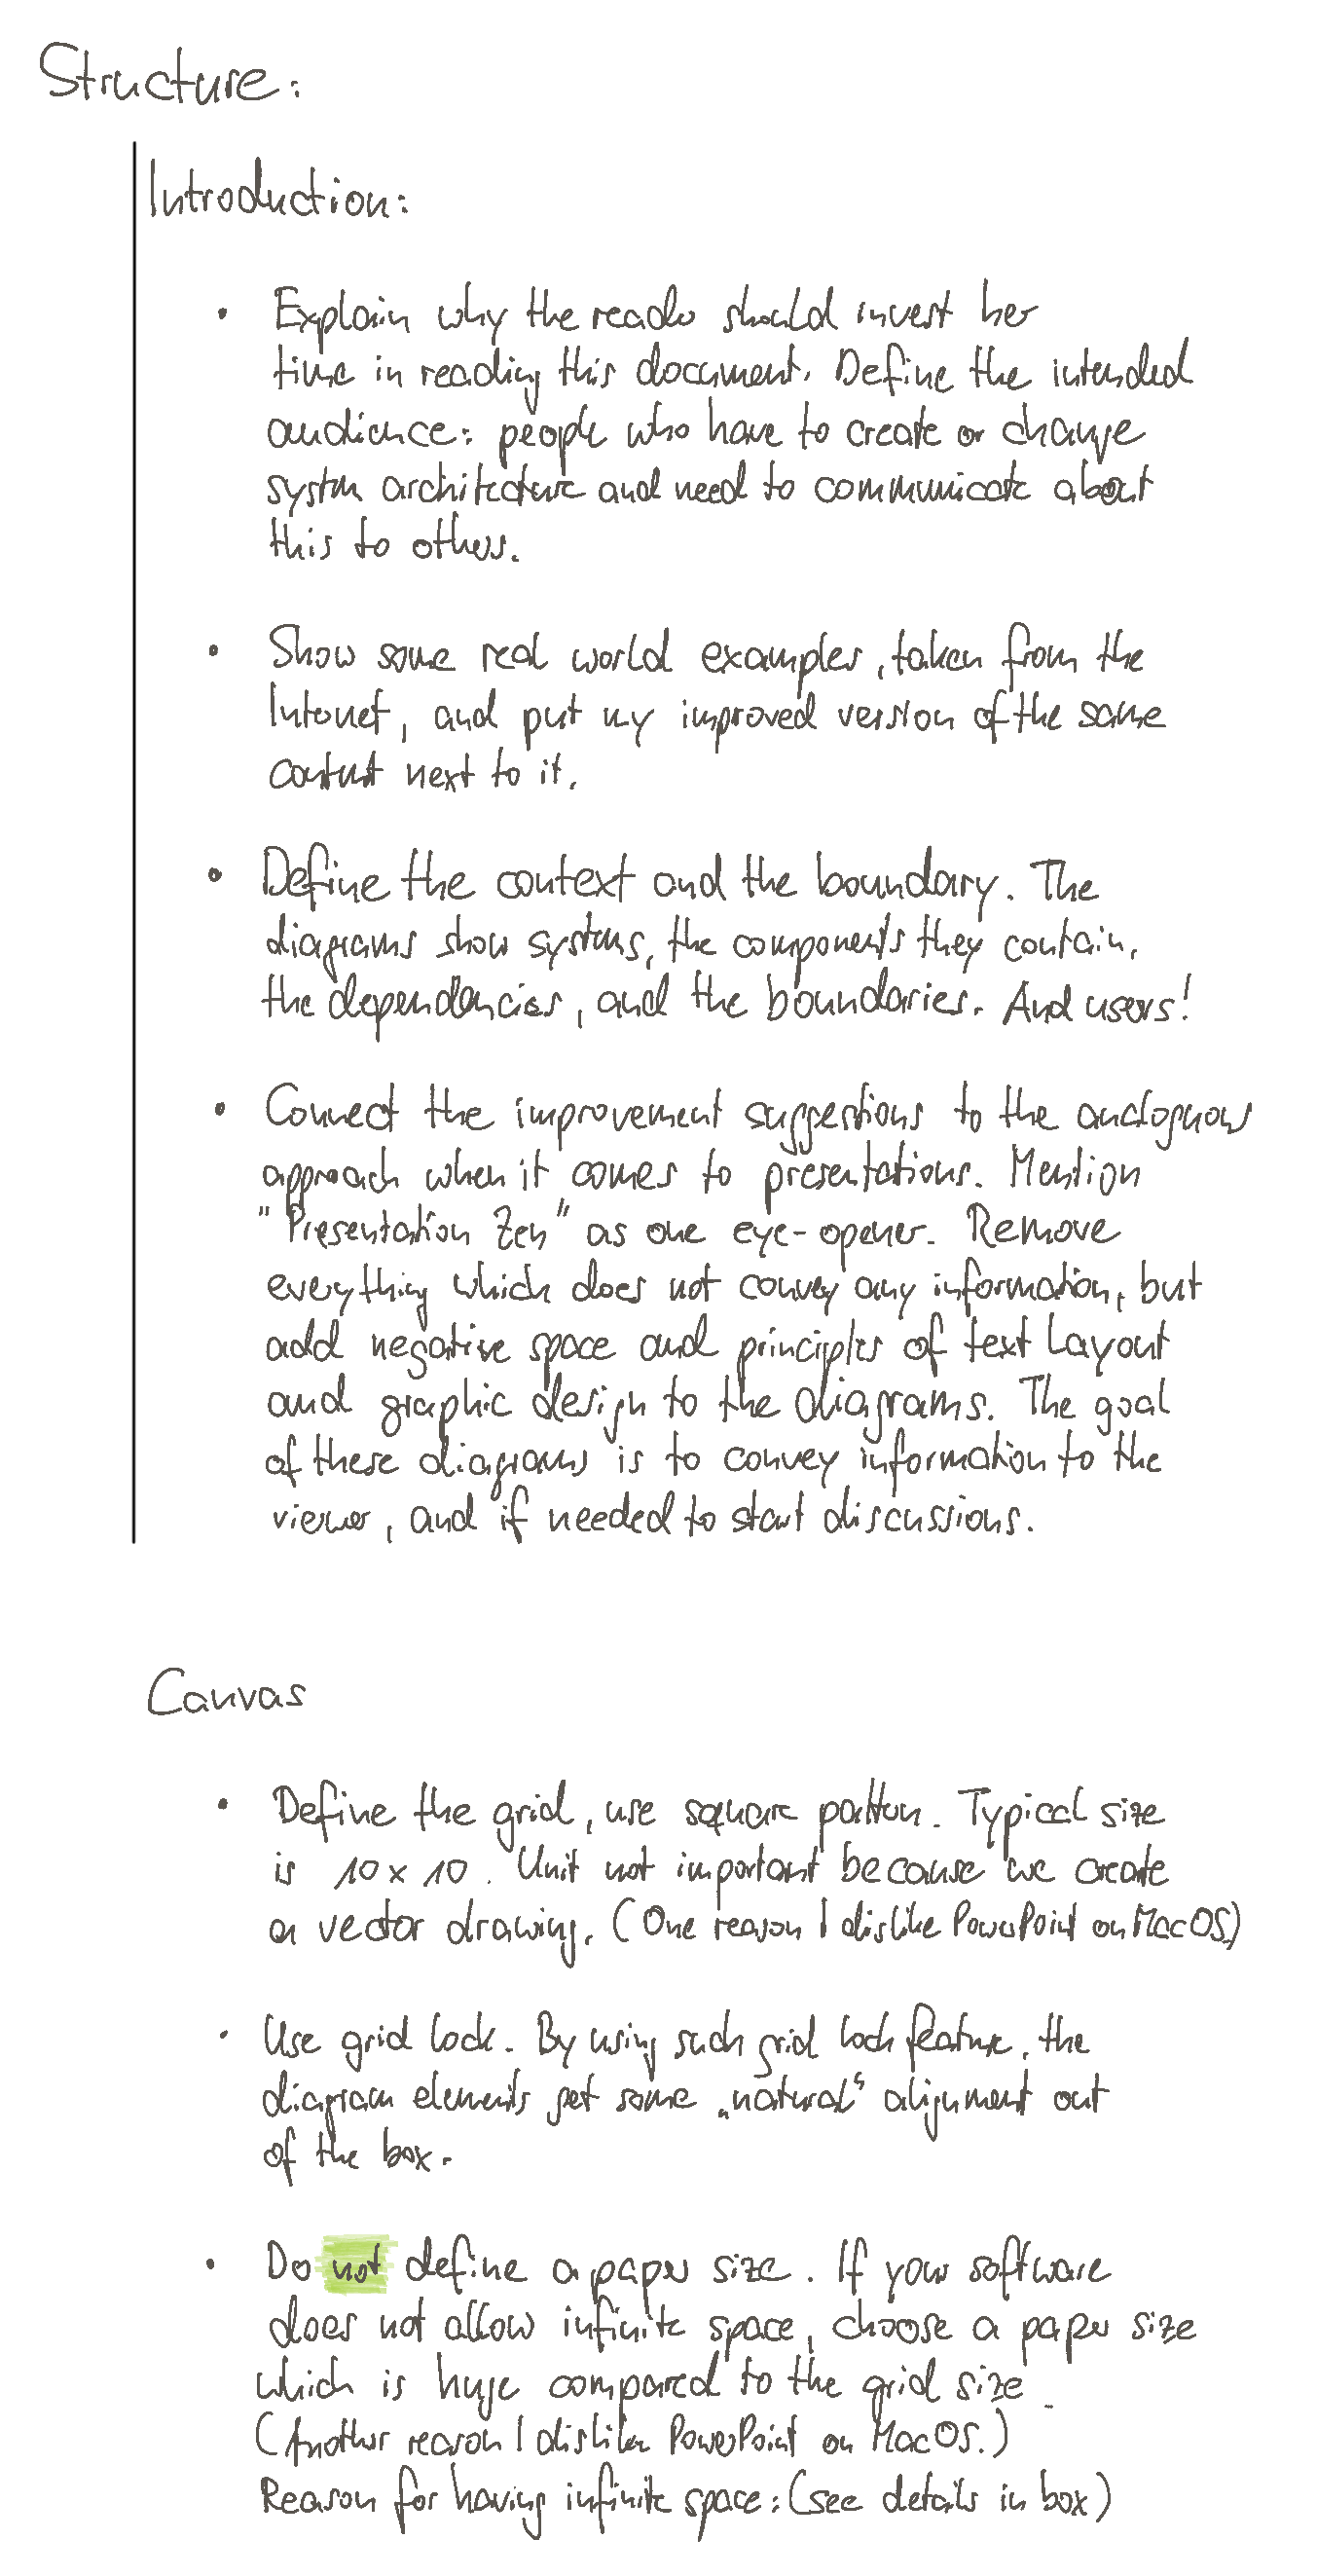 Structure:
Introduction:
• Explain why the reader should invest her
time in reading this document. Define the intended
audience: people who have to create or change
system architecture and need to communicate about
this to others.
• Show some real world examples, taken from the
Internet, and put my improved version of the same
content next to it.
• Define the context and the boundary. The
diagrams show systems, the components they contain,
the dependencies, and the boundaries. And users!
• Connect the improvement suggestions to the
approach when it comes to presentations. Mention
"Presentation Zen" as one eye-opener. Remove
everything which does not convey any information, but
add negative space and principles of text layout
and graphic design to the diagrams. The goal
of these diagrams is to convey information to the
viewer, and if needed to start discussions.
Canvas
• Define the grid, use square pattern. Typical size
is 10 x 10. Unit not important because we create
a vector drawing. (One reason I dislike PowerPoint on MacOS)
• Use grid lock. By using such grid lock feature, the
diagram elements get some „natural“ alignment out
of the box.
• Do not define a paper size. If your software
does not allow infinite space, choose a paper size
which is huge compared to the grid size.
(Another reason I dislike PowerPoint on MacOS.)
Reason for having infinite space: (see details in box)